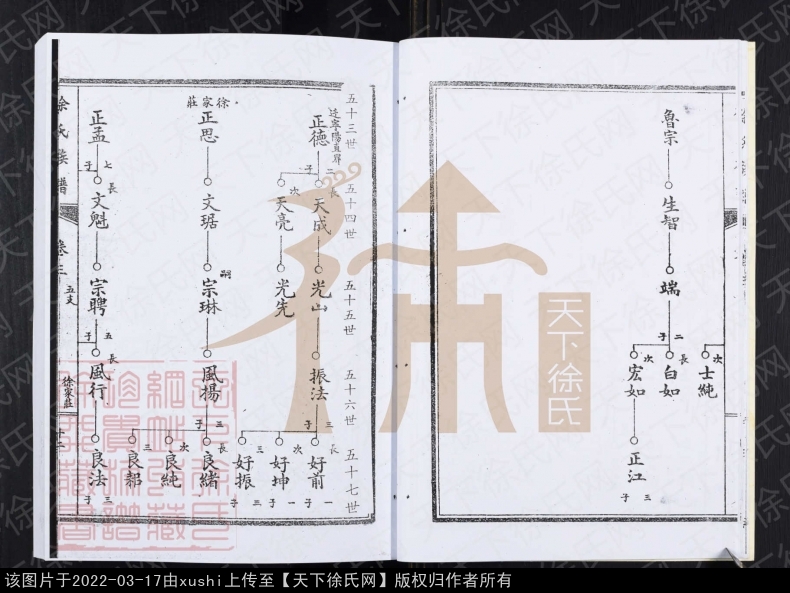 魯宗
生智
端
二子
長 白如
次 宏如
次 士純
正江
三子
五十三世
五十四世
五十五世
五十六世
五十七世
正德
二子
長 天成
次 天亮
光山
光先
振法
三子
長 好前
次 好坤
三 好振
一子
一子
三子
徐家莊
正思
文琚
嗣 宗琳
風揚
三子
長 良緒
次 良純
三 良郝
正孟
七子
長 文魁
宗聘
五子
長 風行
良法
三子
徐氏族譜
卷三
五支
徐家莊
十二
天下徐氏
天下徐氏网
该图片于2022-03-17由xushi上传至【天下徐氏网】版权归作者所有